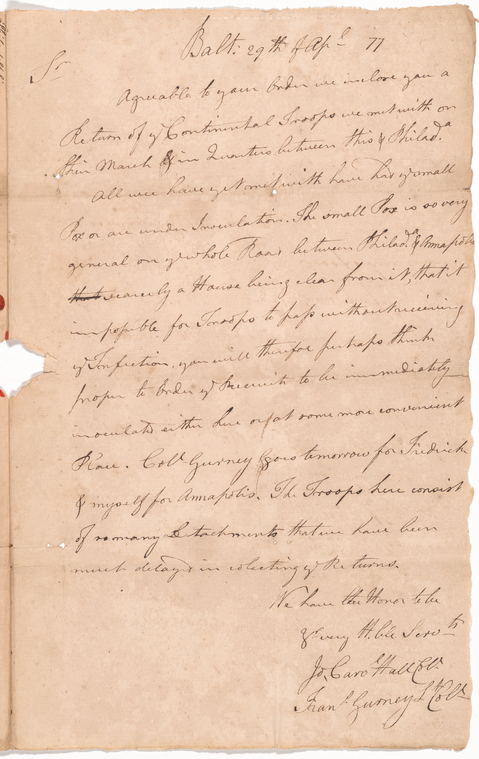 Balt: 29th of Apl 77
Sr
Agreeable to your Order we inclose you a
Return of ye Continental Troops we met with on
their March & in Quarters between this & Philada
All we have yet met with have had ye small
Pox or are under Inoculation. The small Pox is so very
general on ye whole Road between Philada & Annapolis
that scarcely a House being clear from it, that it
impossible for Troops to pass without receiving
ye Infection, you will therefore perhaps think
proper to Order ye Recruits to be immediately
inoculated either here or at some more convenient
Place. Colo. Gurney goes tomorrow for Fredrick
& myself for Annapolis. The Troops here consist
of so many Detachments that we have been
much delayed in collecting ye Returns.
We have the Honor to be
Yr very Hble Servts
Jo. Carvl Hall Colo.
Frans Gurney Lt Colo.